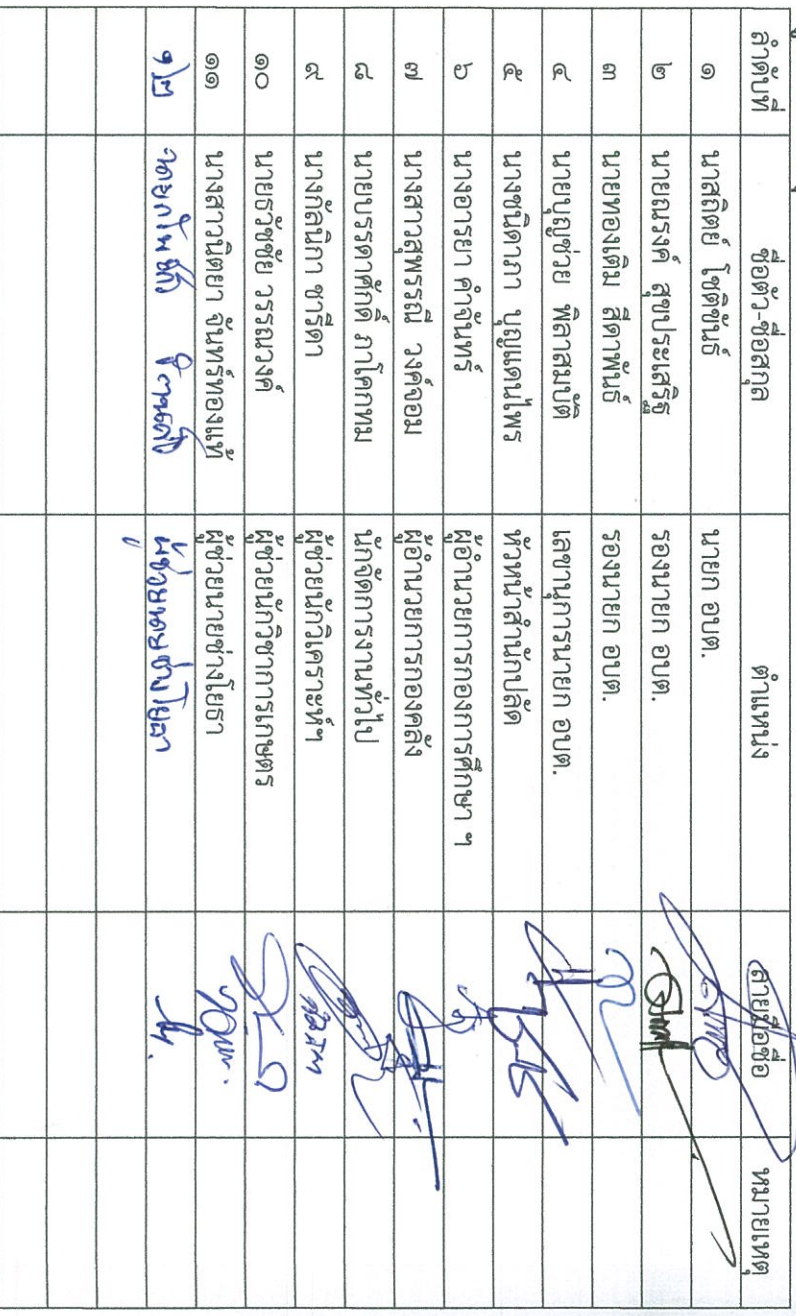 ลำดับที่ ชื่อตัว-ชื่อสกุล ตำแหน่ง ลายมือชื่อ หมายเหตุ
๑ นาสถิตย์ โชติขันธ์ นายก อบต.
๒ นายณรงค์ สุขประเสริฐ รองนายก อบต.
๓ นายทองเติม สีดาพันธ์ รองนายก อบต.
๔ นายบุญช่วย พิลาสมบัติ เลขานุการนายก อบต.
๕ นางชนิดาภา บุญแดนไพร หัวหน้าสำนักปลัด
๖ นางอารยา คำจันทร์ ผู้อำนวยการกองการศึกษา ฯ
๗ นางสาวสุพรรณี วงค์จอม ผู้อำนวยการกองคลัง
๘ นายบรรดาศักดิ์ ภาโคกทม นักจัดการงานทั่วไป
๙ นางกัลนิกา ชารีดา ผู้ช่วยนักวิเคราะห์ฯ
๑๐ นายธวัชชัย วรรณวงค์ ผู้ช่วยนักวิชาการเกษตร
๑๑ นางสาวนิตยา จันทร์ทองแท้ ผู้ช่วยนายช่างโยธา
๑๒ ผู้ช่วยนายช่างโยธา